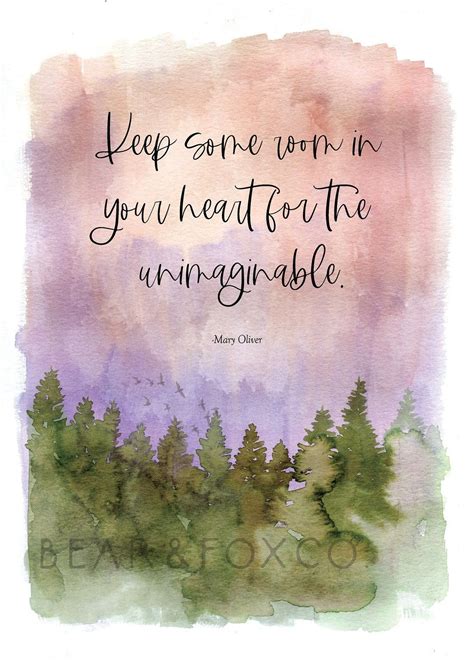 Keep some room in
your heart for the
unimaginable.
-Mary Oliver
BEAR & FOX CO